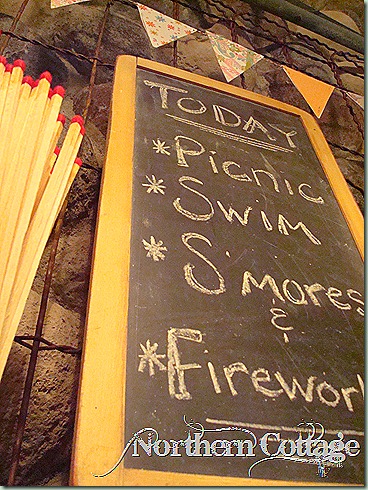 TODAY
* Picnic
* Swim
* S'mores
&
* Firework
Northern Cottage